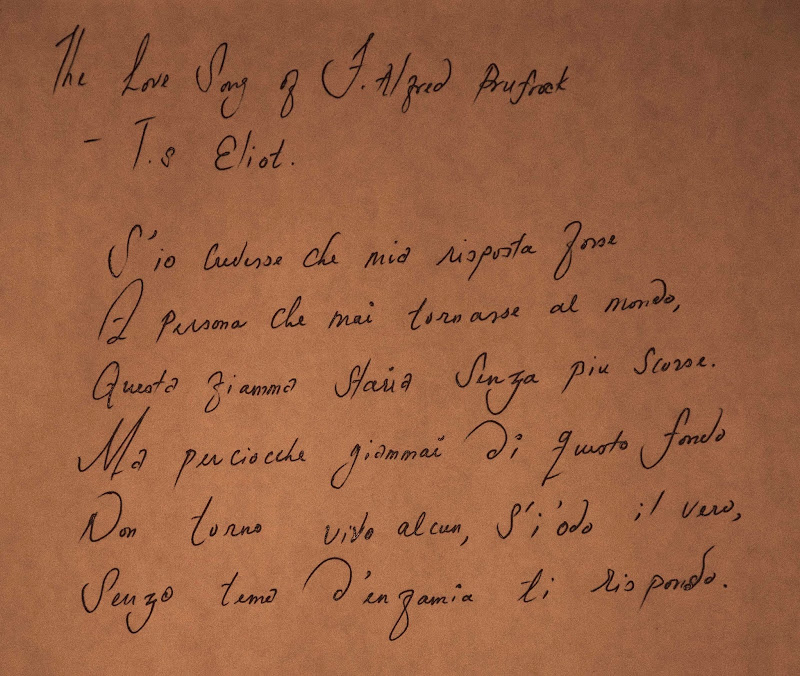 The Love Song of J. Alfred Prufrock
- T.s Eliot.
S'io credesse che mia risposta fosse
A persona che mai tornasse al mondo,
Questa fiamma staria senza piu scosse.
Ma perciocche giammai di questo fondo
Non torno vivo alcun, s'i'odo il vero,
Senzo tema d'enfamia ti rispondo.